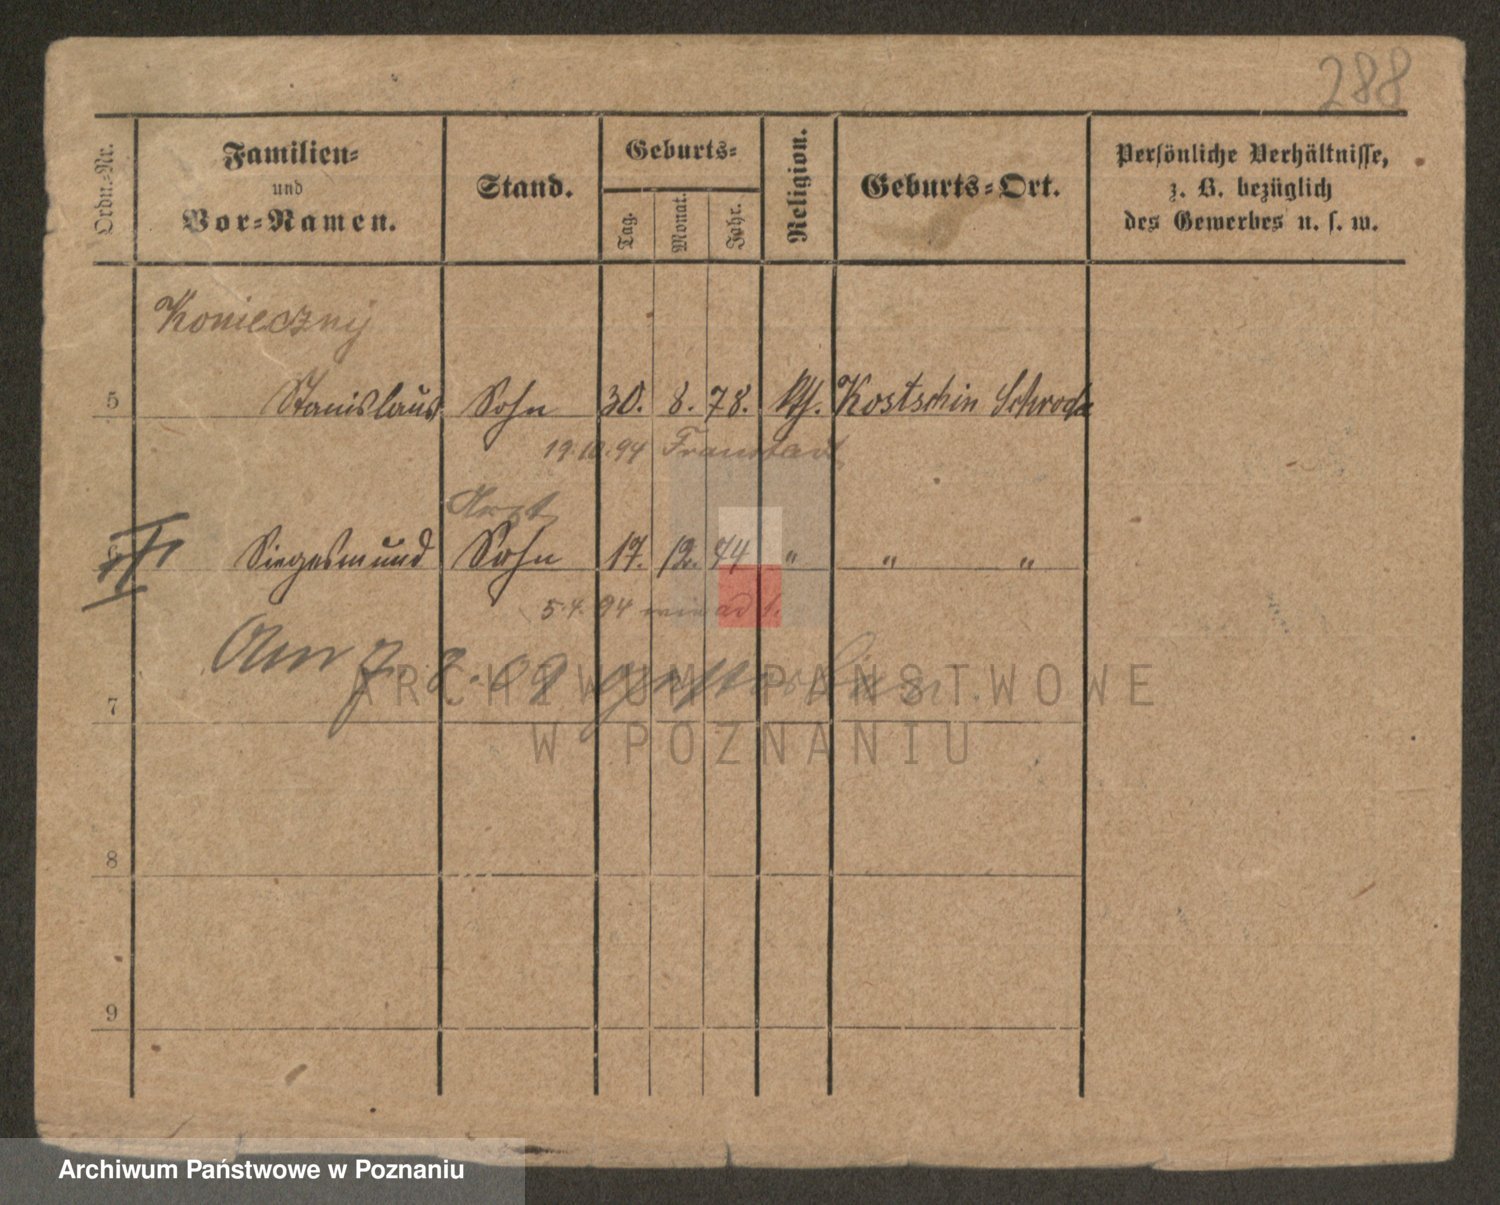 288
Ordn.-Nr.
Familien-
und
Vor-Namen.
Stand.
Geburts-
Tag.
Monat.
Jahr.
Religion.
Geburts-Ort.
Persönliche Verhältnisse,
z. B. bezüglich
des Gewerbes u. s. w.
Konieczny
5 Stanislaus Sohn 30. 8. 78. kth. Kostschin Schroda
19.10.94 Fraustadt
Arzt
6 Siegesmund Sohn 17. 12. 74 " " "
5.4.94 wie ad 1.
Am 7. 8. 09 gestorben.
ARCHIWUM PAŃSTWOWE
7
W POZNANIU
8
9
Archiwum Państwowe w Poznaniu